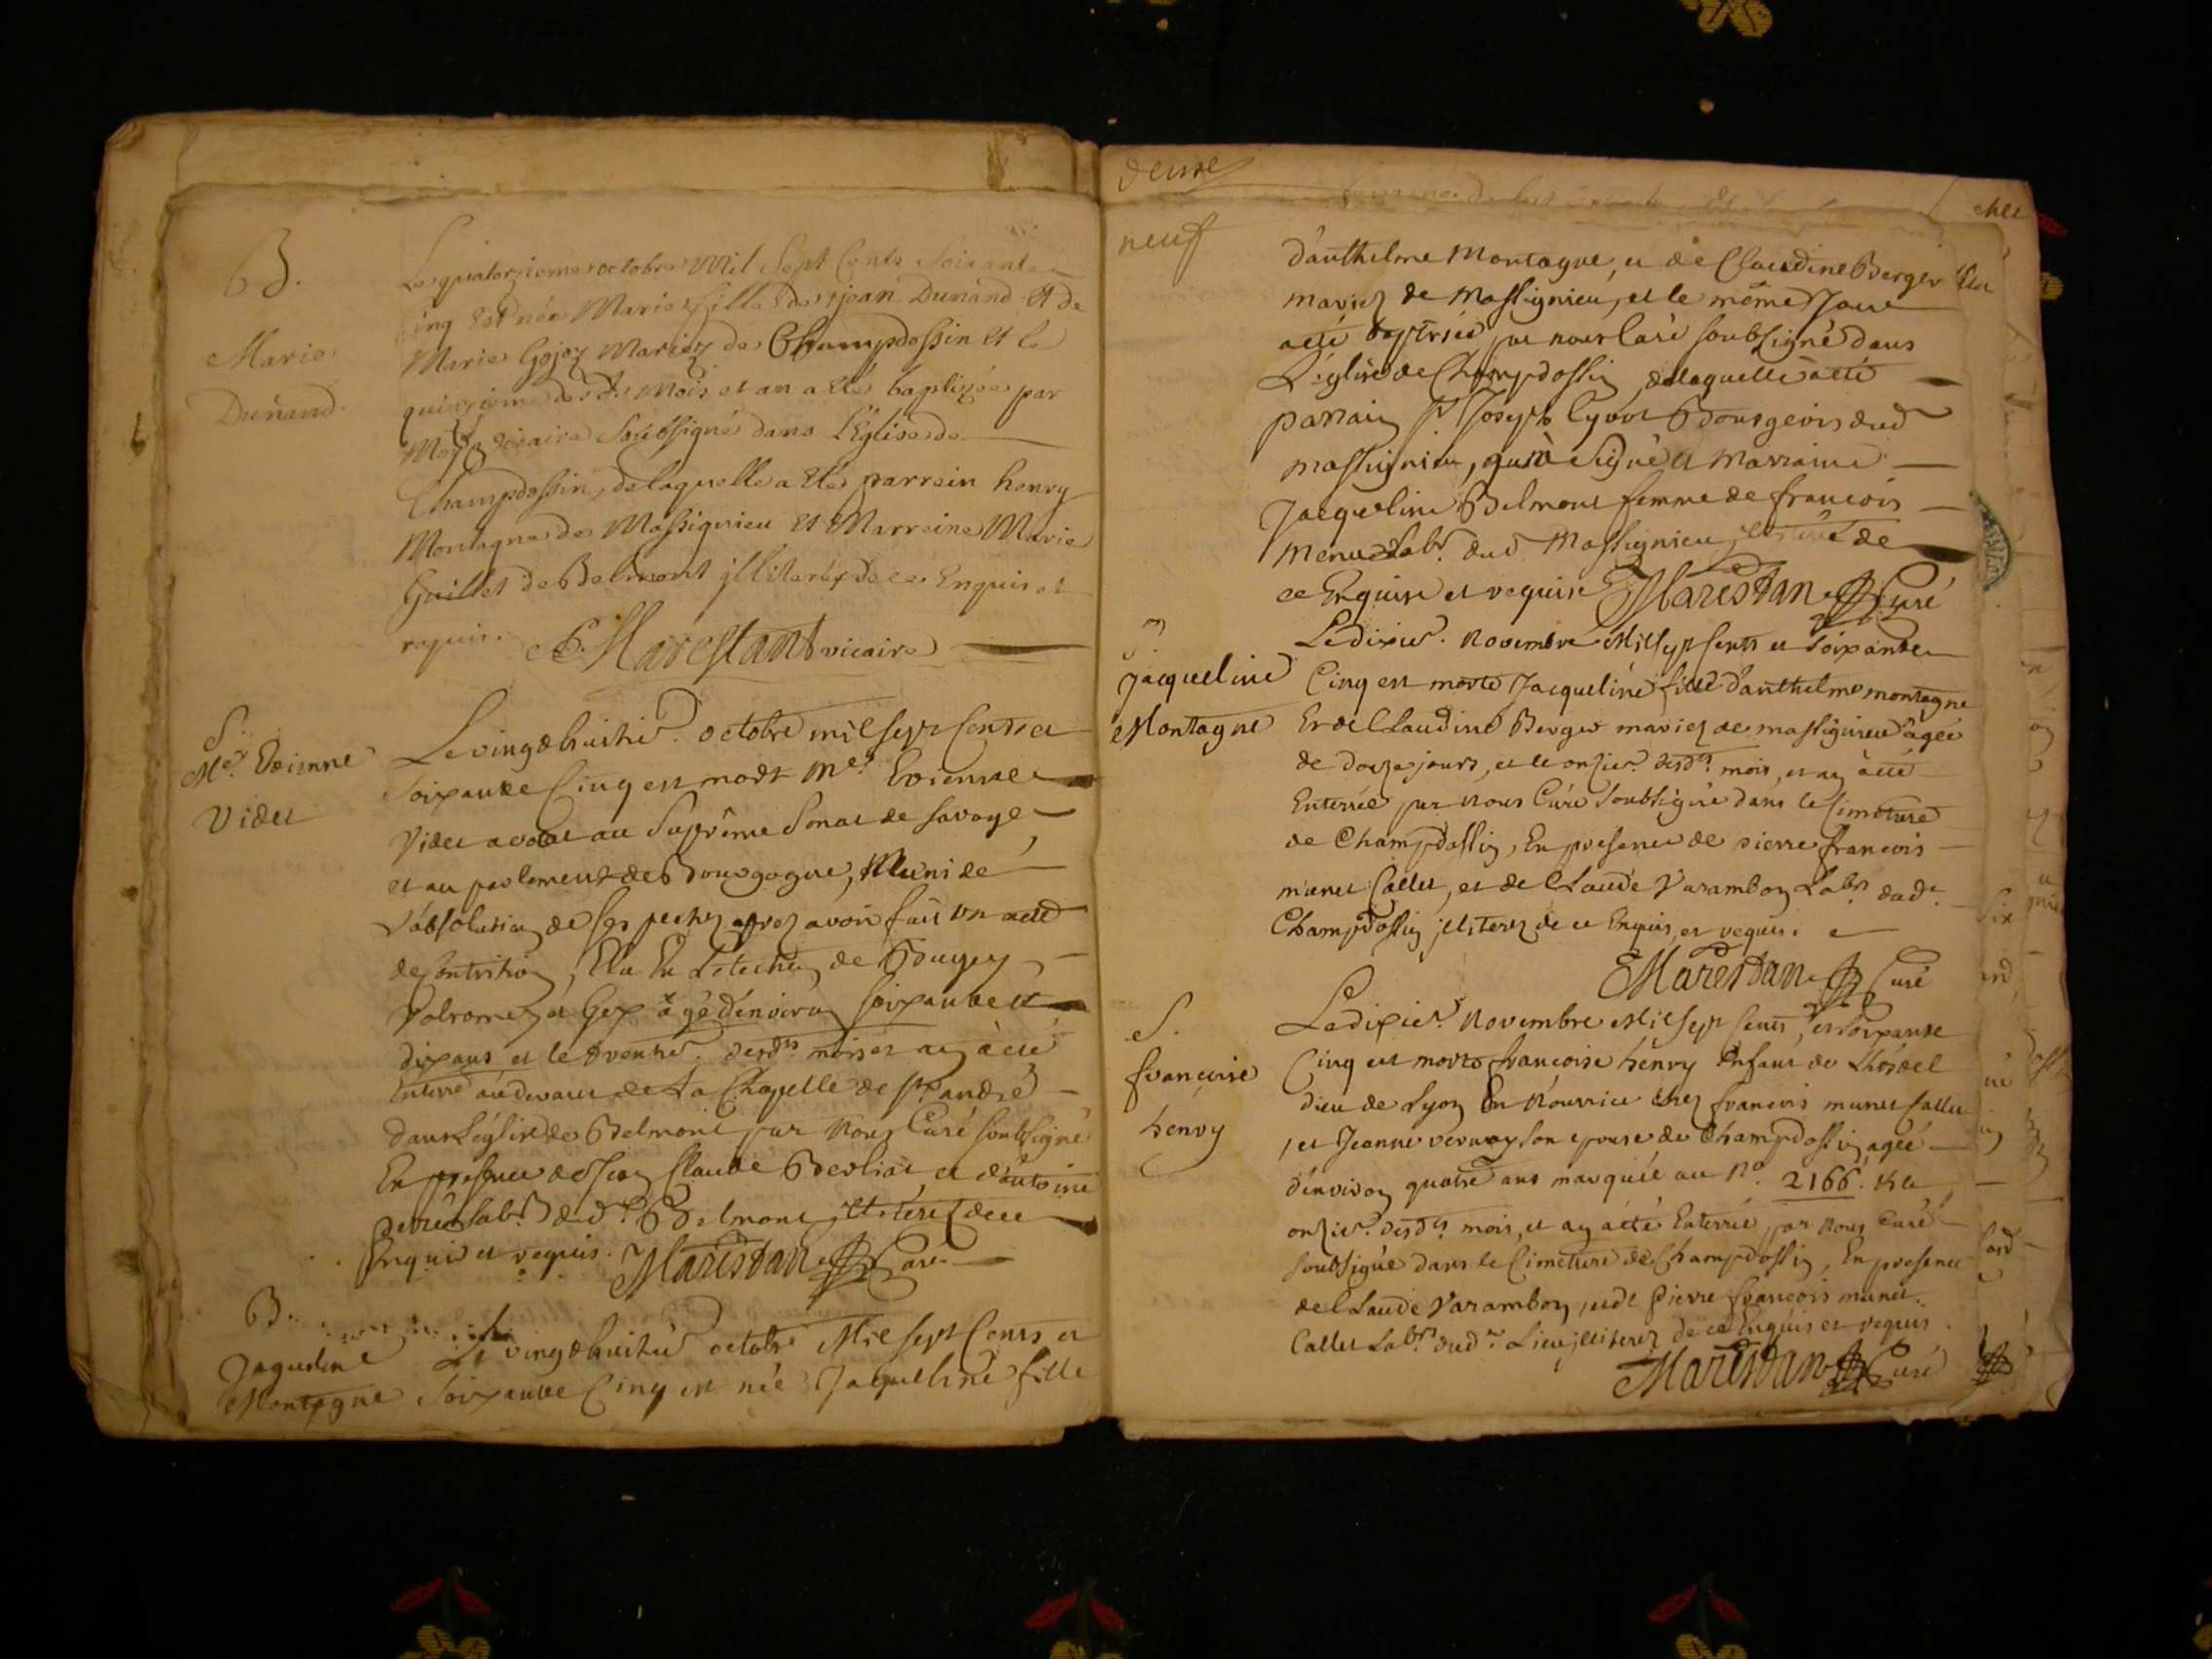 B.
Marie
Dunand.
Le quatorzieme octobre Mil Sept Cents Soixante
Cinq Est née Marie fille de jean Dunand Et de
Marie Gojoz Mariez de Champdossin Et le
quinzieme des dts Mois et an a Eté baptizée par
Moy vicaire Soubssigné dans l'Eglise de
Champdossin, de laquelle a Eté parrein henry
Montagne de Massignieu Et Marreine Marie
Guillet de Belmont jlliteréz de ce Enquis et
requis. Marestant vicaire
S.
Me. Etienne
Videt
Le vingthuitie. octobre mil sept Cents et
Soixante Cinq est mort Me. Etienne
Videt avocat au Suprême Senat de Savoye
et au parlement de Bourgogne, Muni de
L'absolution de ses pechez aprez avoir fait un acte
de Contrition, Elu En L'election de Bugey
Valromey et Gex agé d'environ soixante et
dix ans et le trentie. desdts mois et an à eté
Enterré au devant de La Chapelle de St. andré
dans L'église de Belmont par Nous Curé soubsigné
En presence de Jean Claude Berliat et d'antoine
Labr. dud. Belmont jlliterez de ce
Enquis et requis. Marestan Curé
B.
Jaqueline
Montagne
Le vingthuitie octobre Mil sept Cents et
Soixante Cinq est née Jaqueline fille
neuf
d'anthelme Montagne, et de Claudine Berger
mariez de Massignieu, et le même Jour
a été baptisée par nous Curé soubsigné dans
L'église de Champdossin, de laquelle à eté
parrain Sr. Joseph Cyvoct Bourgeois dud
massignieu, qui à signé et Marraine
Jacqueline Belmont femme de francois
Menu Labr. dud Massignieu de
ce Enquise et requise Marestan Curé
S.
Jacqueline
Montagne
Le dixie. Novembre Mil sept Cents et soixante
Cinq est morte Jacqueline fille d'anthelme montagne
Et de Claudine Berger mariez de massignieu agée
de douze jours, et le onzie. desdts mois, et an à eté
Enterrée par Nous Curé soubsigné dans le Cimetiere
de Champdossin, En presence de pierre francois
munet Callet, et de Claude Varambon Labrs dudt
Champdossin jlliterez de ce Enquis, et requis.
Marestan Curé
S.
francoise
henry
Le dixie. Novembre Mil sept Cents, et soixante
Cinq est morte francoise henry Enfant de L'hotel
dieu de Lyon En Nourrice chez francois munet Callet
, et Jeanne vernay son epouse de Champdossin, agée
d'environ quatre ans marquée au No. 2166. Et le
onzie. desdts mois, et an a été Enterrée par Nous Curé
soubsigné dans le Cimetiere de Champdossin, En presence
de Claude Varambon, et de Pierre francois munet
Callet Labrs dudt Lieu jlliterez de ce Enquis et requis
Marestan Curé